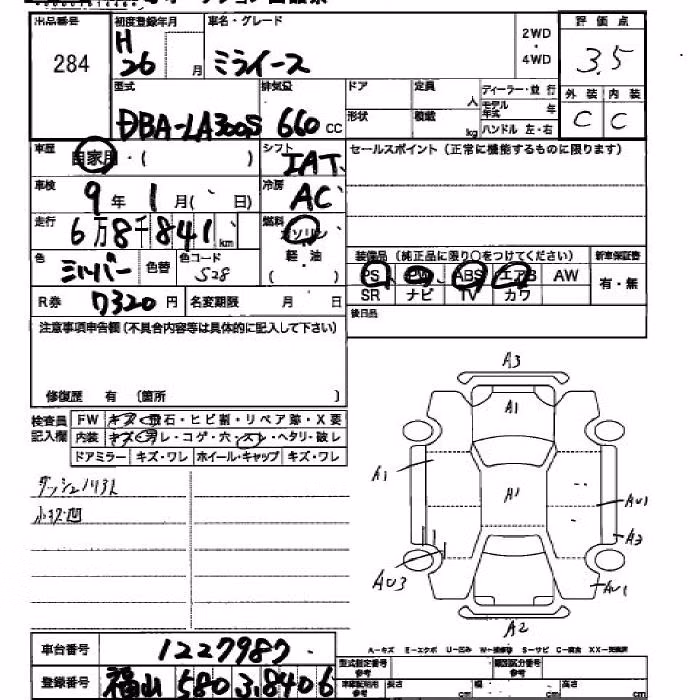 出品番号 284
初度登録年月 H 26 月
車名・グレード ミライース
2WD・4WD
評価点 3.5
外装 C 内装 C
型式 DBA-LA300S
排気量 660 cc
ドア 定員 人
形状 積載 kg
ディーラー・並行
モデル年式 年
ハンドル 左・右
車歴 自家用・( )
シフト IAT
セールスポイント(正常に機能するものに限ります)
車検 9年 1月( 日)
冷房 AC
走行 6万8千841km
燃料 ガソリン
軽・油
色 シルバー 色替 色コード S28
装備品(純正品に限り○をつけてください) 新車保証書
PS PW ABS エアB AW 有・無
SR ナビ TV カワ
R券 7320円 名変期限 月 日
後日品
注意事項申告欄(不具合内容等は具体的に記入して下さい)
修復歴 有 (箇所 )
検査員記入欄
FW キズ・飛石・ヒビ割・リペア跡・X要
内装 キズ・ワレ・コゲ・穴・スレ・ヘタリ・破レ
ドアミラー キズ・ワレ ホイール・キャップ キズ・ワレ
ダッシュノリ引ハ
小キズ凹
A3
A1
A1
A1
AU1
A3
AU3
AU1
A2
A-キズ E-エクボ U-凹み W-補修跡 S-サビ C-腐食 XX-交換済
車台番号 1227987
登録番号 福山 580 3 8406
型式指定番号 参考 類別区分番号 参考
長さ cm 幅 cm 高さ cm